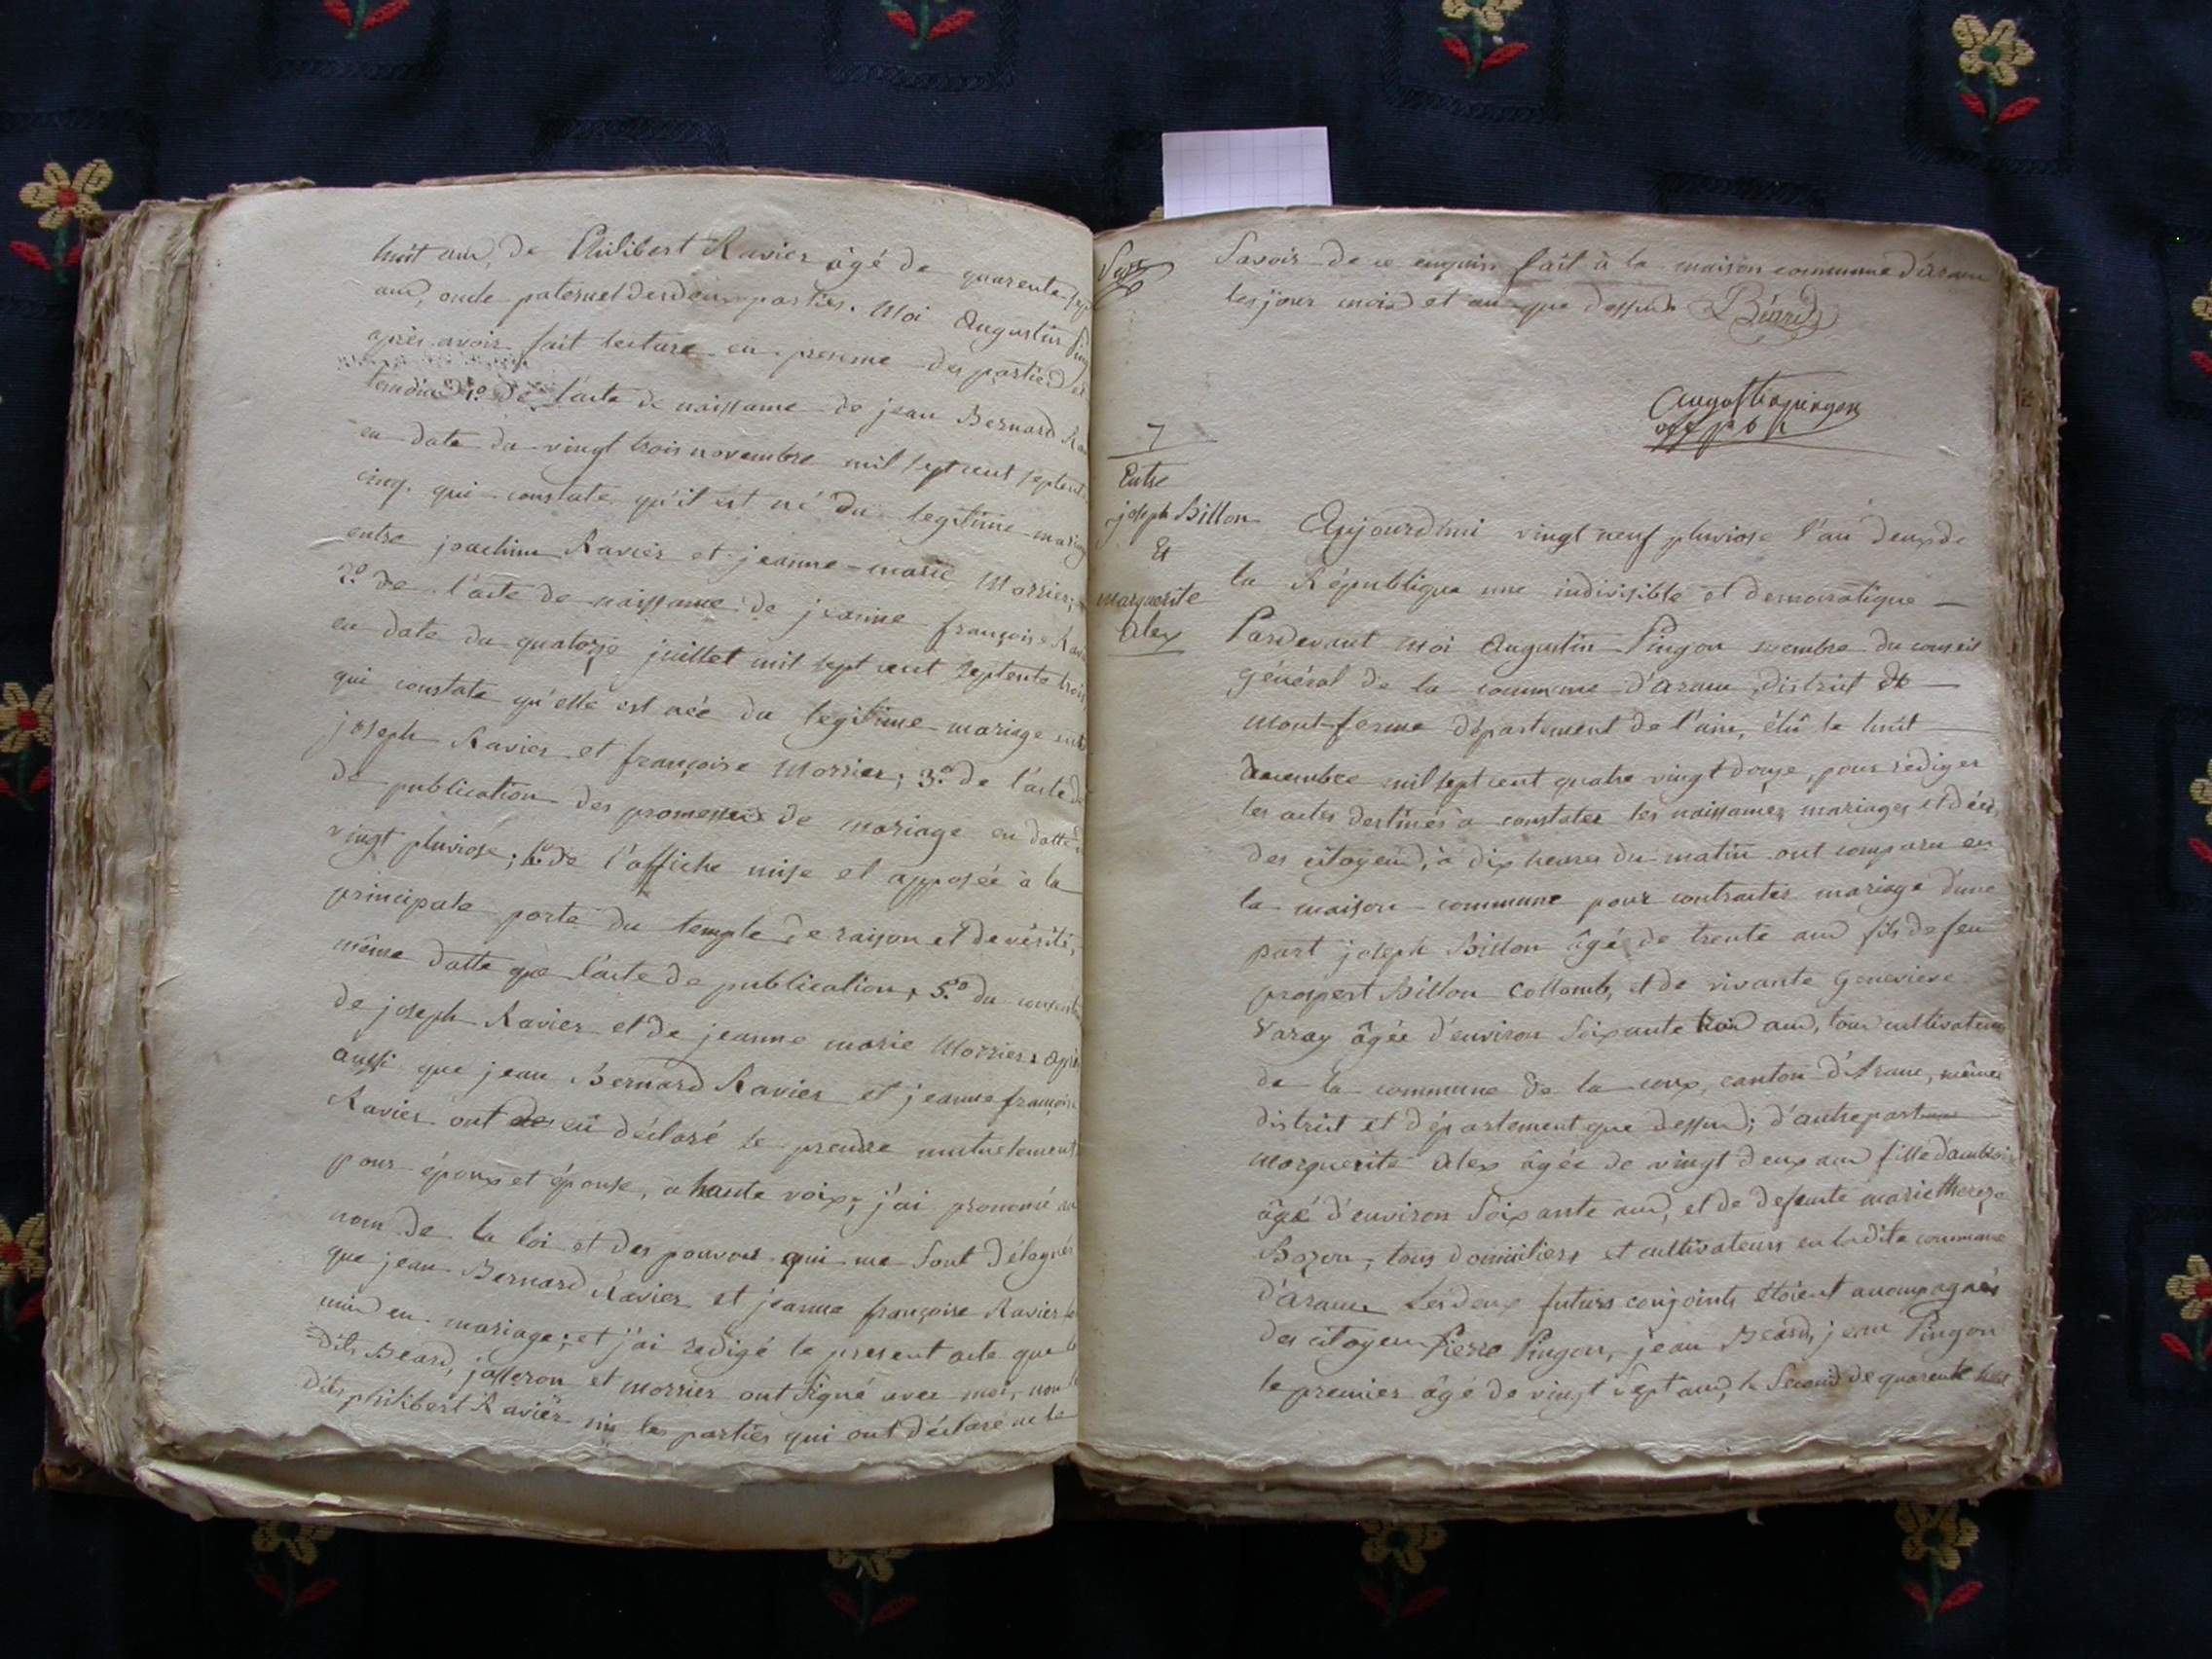 huit ans, de Philibert Ravier âgé de quarente sept
ans, oncle paternel des deux parties. Moi Augustin Ping
après avoir fait lecture en presence des parties et
temoins 1.º de l'acte de naissance de jean Bernard Ra
en date du vingt trois novembre mil sept cent septent
cinq. qui constate qu'il est né du legitime mariag
entre joachim Ravier et jeanne-marie Morrier;
2.º de l'acte de naissance de jeanne françoise Rav
en date du quatorze juillet mil sept cent septente trois
qui constate qu'elle est née du legitime mariage entr
joseph Ravier et françoise Morrier; 3.º de l'acte de
de publication des promesses de mariage en datte d
vingt pluviose; 4.º de l'affiche mise et apposée à la
principale porte du temple de raison et de vérité,
même datte que l'acte de publication, 5.º du consent
de joseph Ravier et de jeanne marie Morrier; après
aussi que jean Bernard Ravier et jeanne françoise
Ravier ont eû déclaré se prendre mutuelement
pour époux et épouse, à haute voix; j'ai prononcé au
nom de la loi et des pouvoirs qui me sont délegués
que jean Bernard Ravier et jeanne françoise Ravier s
unis en mariage; et j'ai redigé le present acte que le
dits Beard, josseron et morrier ont signé avec moi, non le
dits philibert Ravier ni les parties qui ont déclaré ne le
Savoir de ce enquis fait à la maison commune d'arane
les jour mois et an que dessus Béard
augustin pingon
off p b l
7
Entre
joseph Billon
Et
marguerite
alex
Aujourd'hui vingt neuf pluviose l'an deux de
la République une indivisible et democratique
Pardevant moi Augustin Pingon membre du conseil
général de la commune d'arane, district de
mont-ferme département de l'ain, élû le huit
decembre mil sept cent quatre vingt douze, pour rédiger
les actes destinés à constater les naissances, mariages et déces
des citoyens, à dix heures du matin ont comparu en
la maison commune pour contracter mariage d'une
part joseph Billon âgé de trente ans fils de feu
prospert Billon Collomb, et de vivante Genevieve
Varay âgée d'environ soixante trois ans, tous cultivateurs
de la commune de la coux, canton d'Arane, même
district et département que dessus; d'autre part
Marguerite alex âgée de vingt deux ans fille d'ambroise
âgé d'environ soixante ans, et de defunte marie therese
Bozon, tous domiciliers et cultivateurs en ladite commune
d'arane Les deux futurs conjoints étoient accompagnés
des citoyens Pierre Pingon, jean Beard, jean Pingon
le premier âgé de vingt sept ans, le second de quarente huit